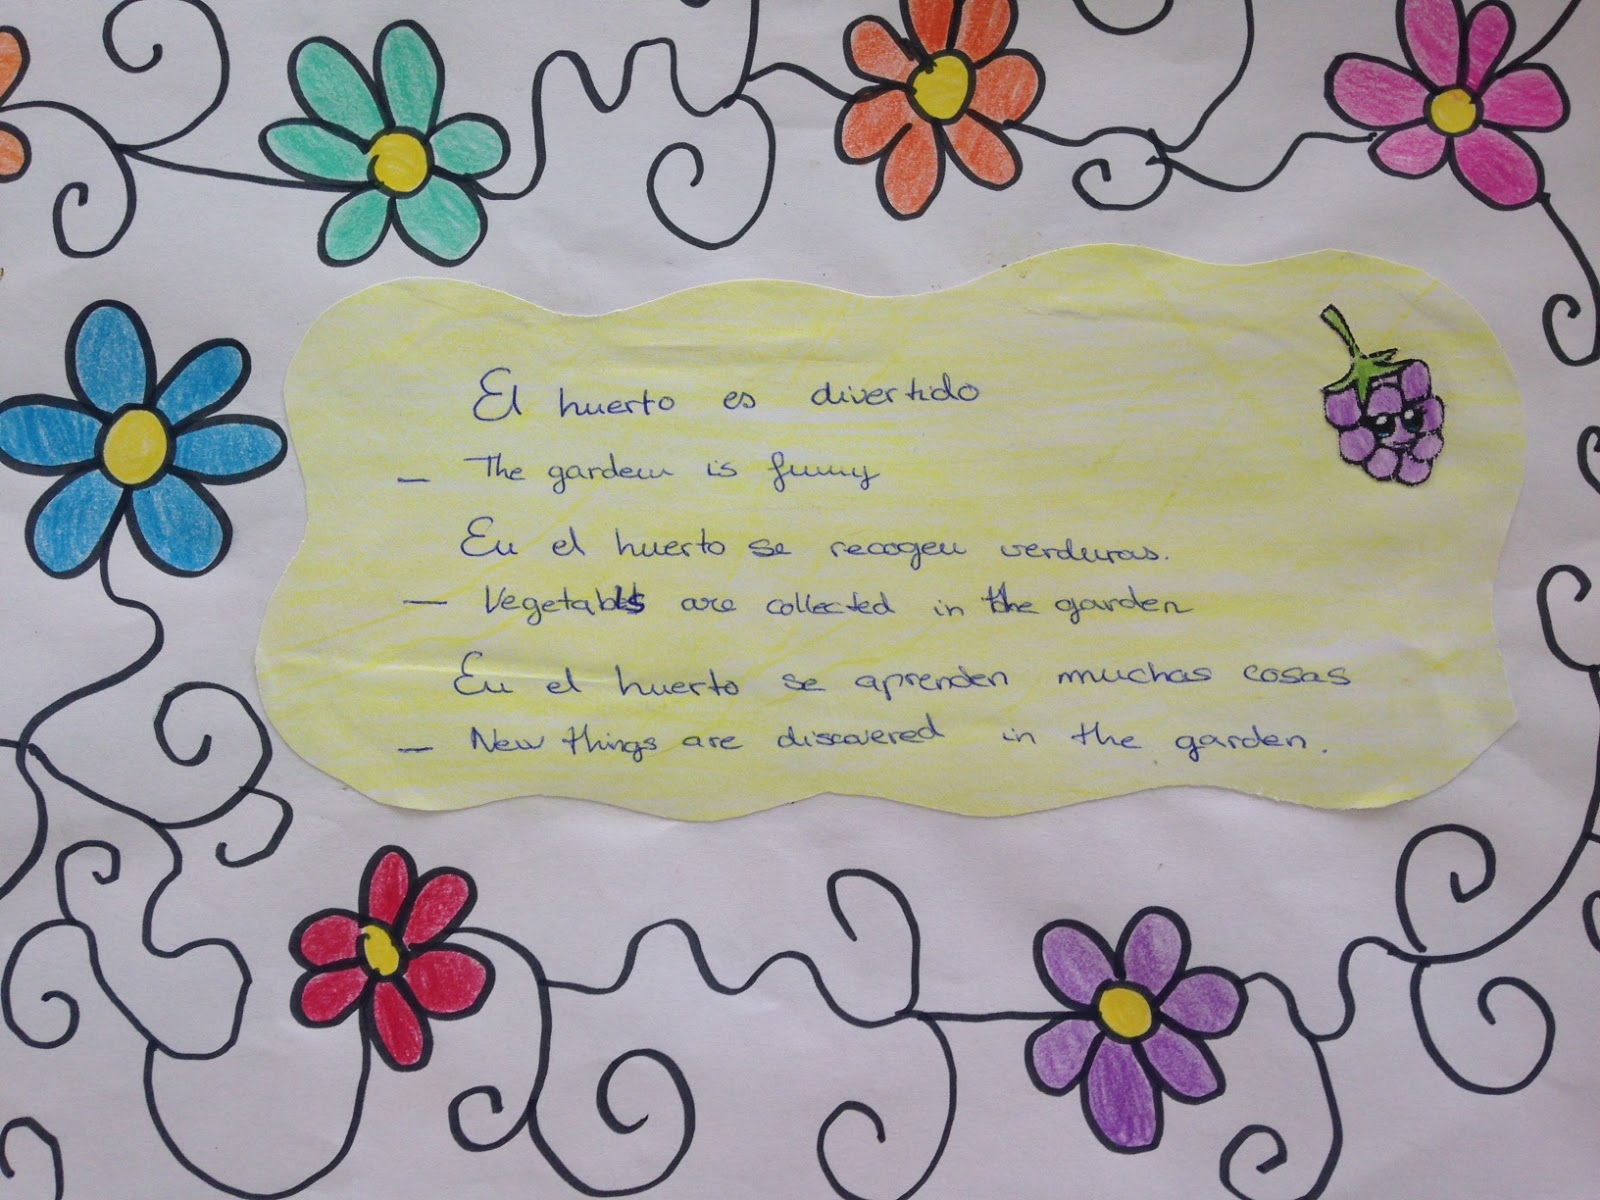 El huerto es divertido
- The garden is funny
En el huerto se recogen verduras.
- Vegetables are collected in the garden
En el huerto se aprenden muchas cosas
- New things are discovered in the garden.